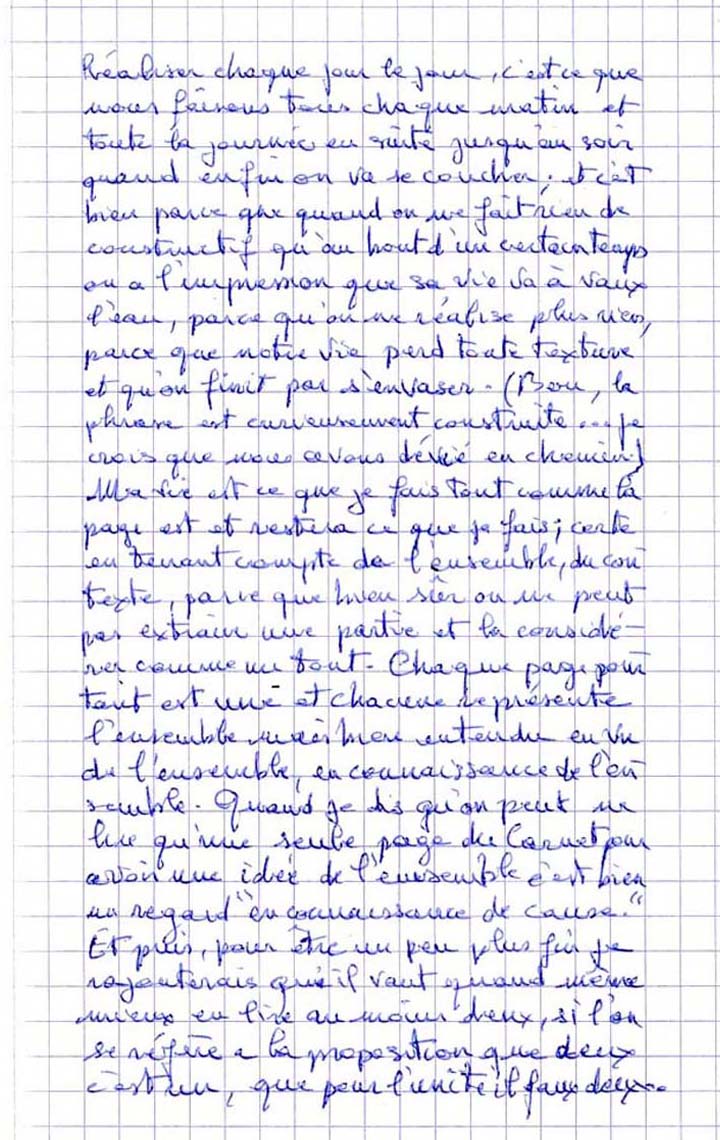 Réaliser chaque jour le jour, c'est ce que
nous faisons tous chaque matin et
toute la journée en suite jusqu'au soir
quand enfin on va se coucher; et c'est
bien parce que quand on ne fait rien de
constructif qu'au bout d'un certain temps
on a l'impression que sa vie va à vaux
l'eau, parce qu'on ne réalise plus rien,
parce que notre vie perd toute texture
et qu'on finit par s'envaser. (Bon, la
phrase est curieusement construite ... je
crois que nous avons dévié en chemin)
Ma vie est ce que je fais tout comme la
page est et restera ce que je fais; certe
en tenant compte de l'ensemble, du con
texte, parce que bien sûr on ne peut
pas extraire une partie et la considé-
rer comme un tout. Chaque page pour
tant est une et chacune représente
l'ensemble mais bien entendu en vu
de l'ensemble, en connaissance de l'en
semble. Quand je dis qu'on peut ne
lire qu'une seule page du Carnet pour
avoir une idée de l'ensemble c'est bien
un regard "en connaissance de cause."
Et puis, pour être un peu plus fin je
rajouterais qu'il vaut quand même
mieux en lire au moins deux, si l'on
se réfère a la proposition que deux
c'est un, que pour l'unité il faux deux..